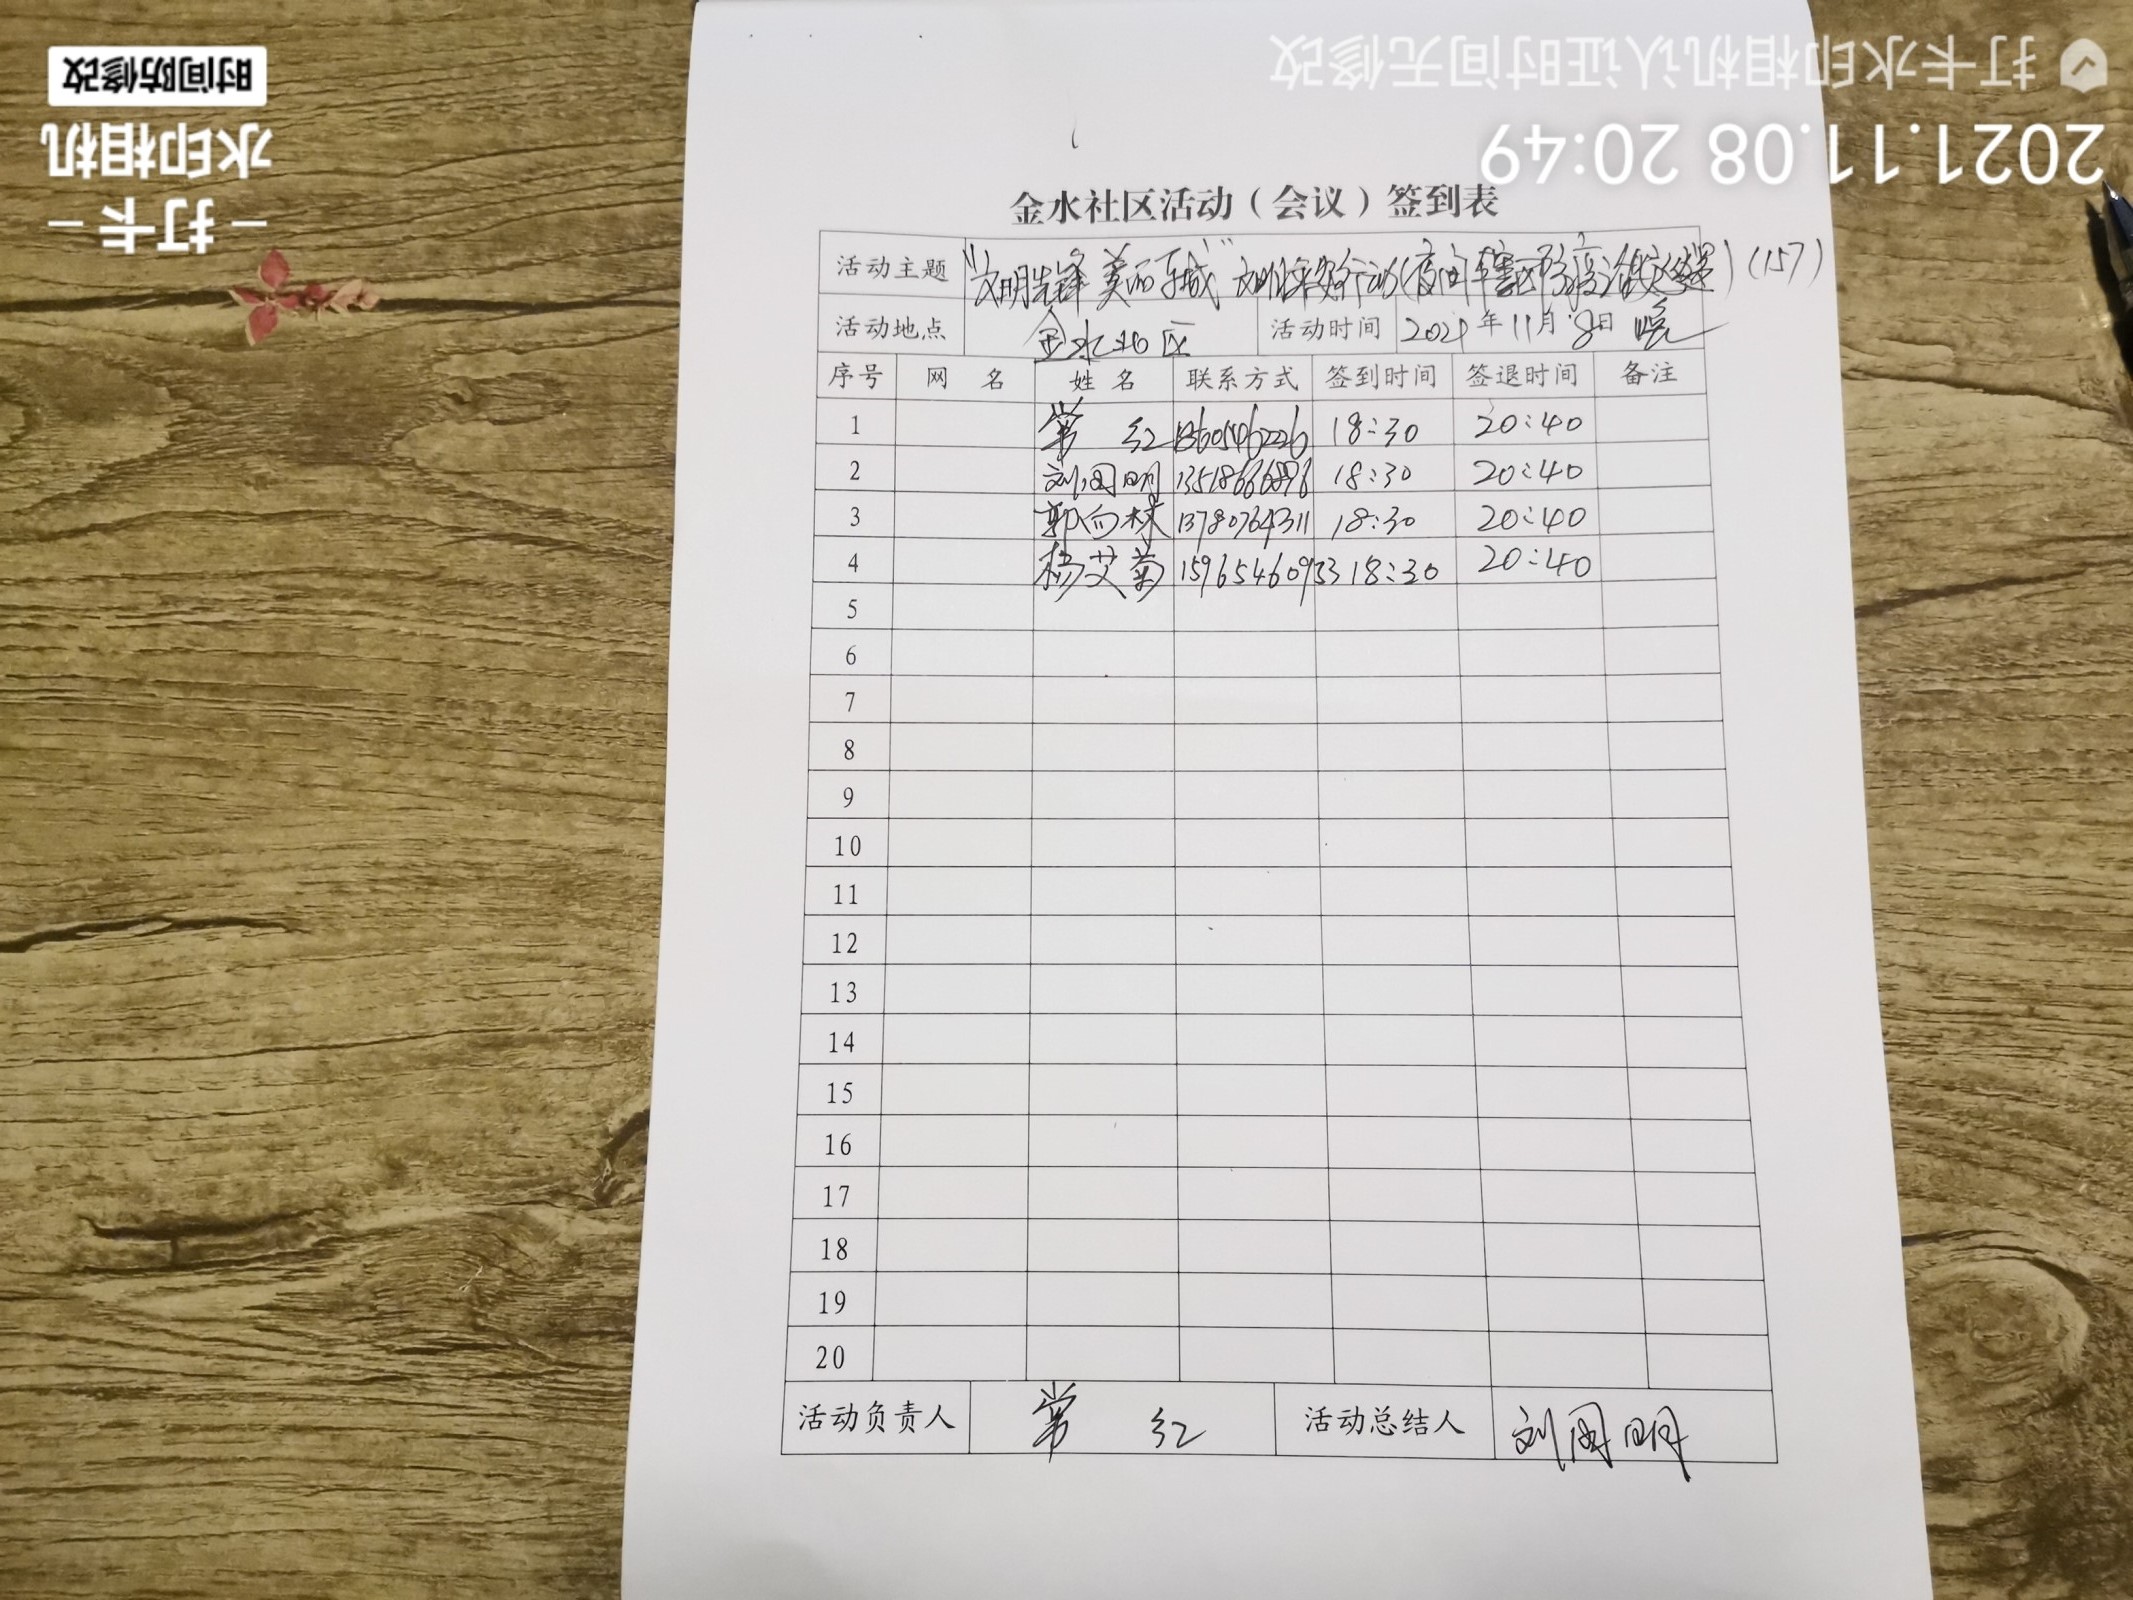 打卡水印相机认证时间无修改
2021.11.08 20:49
时间防修改
水印相机
- 打卡 -
金水社区活动（会议）签到表
活动主题 "文明先锋 美丽 城" 文明 行动(夜间辖区 ) (157)
活动地点 金水社区 活动时间 2021年11月8日 晚
序号 网 名 姓 名 联系方式 签到时间 签退时间 备注
1 常 红 13605462226 18:30 20:40
2 刘国明 13518666896 18:30 20:40
3 郭向林 13780764311 18:30 20:40
4 杨艾菊 15965460933 18:30 20:40
5
6
7
8
9
10
11
12
13
14
15
16
17
18
19
20
活动负责人 常 红 活动总结人 刘国明